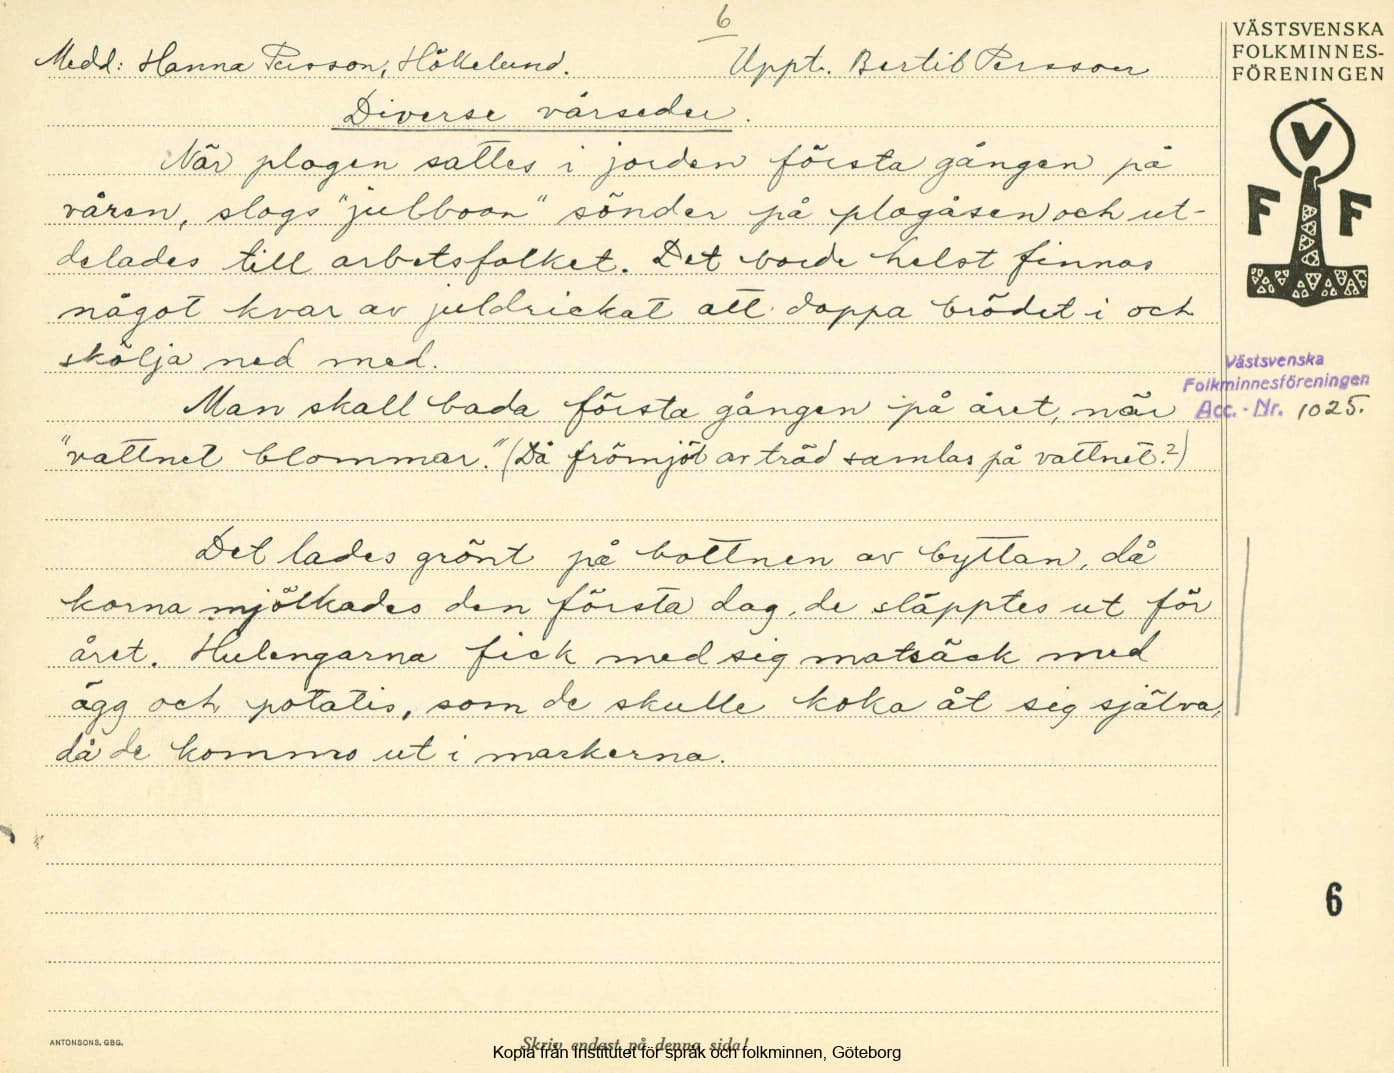 6
Medd: Hanna Persson, Hökelund.
Uppt. Bertil Persson
Diverse vårseder.
När plogen sattes i jorden första gången på
våren, slogs "julboon" sönder på plogåsen och ut-
delades till arbetsfolket. Det borde helst finnas
något kvar av juldrickat att doppa brödet i och
skölja ned med.
Man skall bada första gången på året, när
"vattnet blommar." (Då frömjöl av träd samlas på vattnet?)
Det lades grönt på bottnen av byttan, då
korna mjölkades den första dag, de släpptes ut för
året. Hulengarna fick med sig matsäck med
ägg och potatis, som de skulle koka åt sig själva,
då de kommo ut i markerna.
VÄSTSVENSKA
FOLKMINNES-
FÖRENINGEN
V
F F
Västsvenska
Folkminnesföreningen
Acc.-Nr. 1025.
6
ANTONSONS, GBG.
Skriv endast på denna sida!
Kopia från Institutet för språk och folkminnen, Göteborg